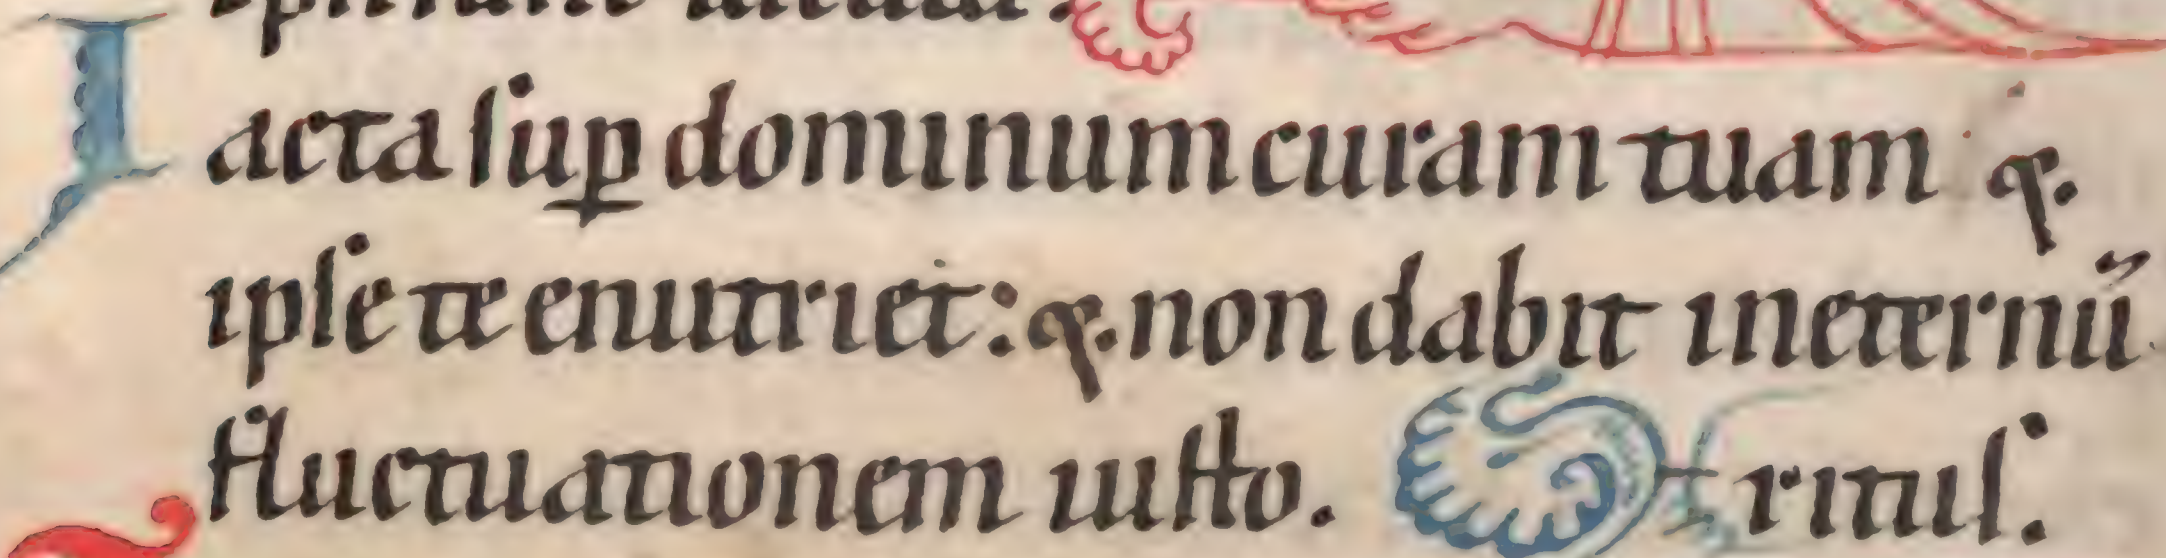 I
acta ſuꝑ dominum curam tuam q.
ipſe te enutriet: q. non dabit in eternū
fluctuationem iuſto. rituſ.